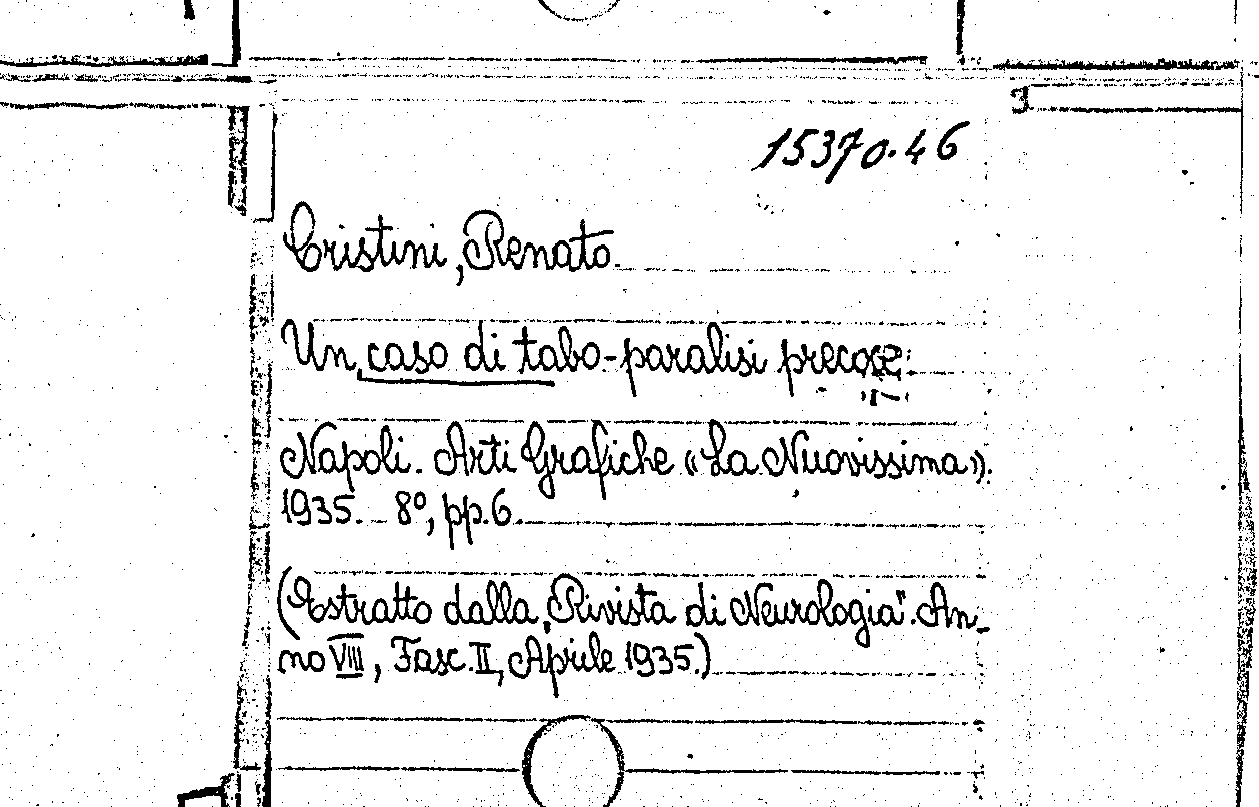 15370.46
Cristini, Renato.
Un caso di tabo-paralisi precoce.
Napoli. Arti Grafiche «La Nuovissima».
1935. 8º, pp. 6.
(Estratto dalla „Rivista di Neurologia". An-
no VIII, Fasc. II, Aprile 1935.)